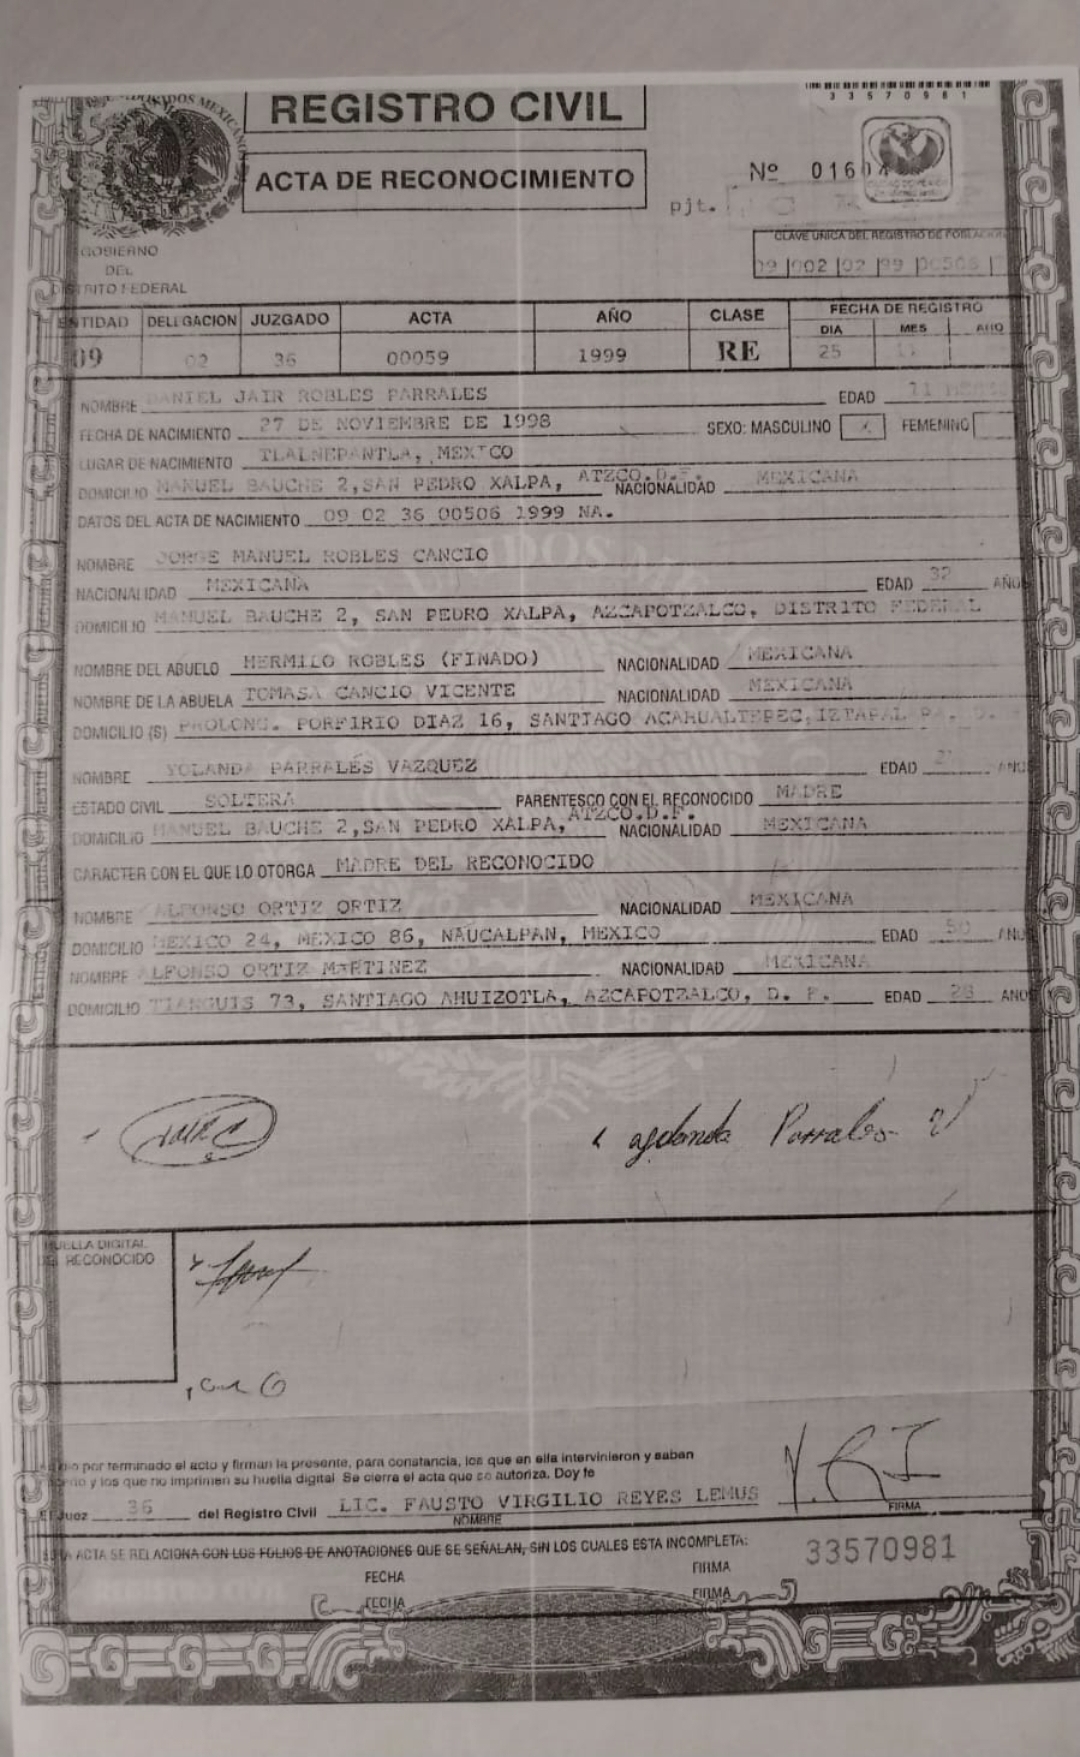 3 3 5 7 0 9 8 1
REGISTRO CIVIL
ACTA DE RECONOCIMIENTO
Nº 0160
pjt.
GOBIERNO
DEL
DISTRITO FEDERAL
CLAVE UNICA DEL REGISTRO DE POBLACION
09 002 02 99 00506
ENTIDAD DELEGACION JUZGADO ACTA AÑO CLASE FECHA DE REGISTRO
DIA MES AÑO
09 02 36 00059 1999 RE 25 11
NOMBRE DANIEL JAIR ROBLES PARRALES EDAD 11 MESES
FECHA DE NACIMIENTO 27 DE NOVIEMBRE DE 1998 SEXO: MASCULINO X FEMENINO
LUGAR DE NACIMIENTO TLALNEPANTLA, MEXICO
DOMICILIO MANUEL BAUCHE 2,SAN PEDRO XALPA, ATZCO.D.F. NACIONALIDAD MEXICANA
DATOS DEL ACTA DE NACIMIENTO 09 02 36 00506 1999 NA.
NOMBRE JORGE MANUEL ROBLES CANCIO
NACIONALIDAD MEXICANA EDAD 32 AÑOS
DOMICILIO MANUEL BAUCHE 2, SAN PEDRO XALPA, AZCAPOTZALCO, DISTRITO FEDERAL
NOMBRE DEL ABUELO HERMILO ROBLES (FINADO) NACIONALIDAD MEXICANA
NOMBRE DE LA ABUELA TOMASA CANCIO VICENTE NACIONALIDAD MEXICANA
DOMICILIO (S) PROLONG. PORFIRIO DIAZ 16, SANTIAGO ACAHUALTEPEC, IZTAPAL PA. D.
NOMBRE YOLANDA PARRALES VAZQUEZ EDAD AÑOS
ESTADO CIVIL SOLTERA PARENTESCO CON EL RECONOCIDO MADRE
DOMICILIO MANUEL BAUCHE 2,SAN PEDRO XALPA, ATZCO.D.F. NACIONALIDAD MEXICANA
CARACTER CON EL QUE LO OTORGA MADRE DEL RECONOCIDO
NOMBRE ALFONSO ORTIZ ORTIZ NACIONALIDAD MEXICANA
DOMICILIO MEXICO 24, MEXICO 86, NAUCALPAN, MEXICO EDAD 50 AÑOS
NOMBRE ALFONSO ORTIZ MARTINEZ NACIONALIDAD MEXICANA
DOMICILIO TIANGUIS 73, SANTIAGO AHUIZOTLA, AZCAPOTZALCO, D. F. EDAD 28 AÑOS
Yolanda Parrales V
HUELLA DIGITAL
DEL RECONOCIDO
por terminado el acto y firman la presente, para constancia, los que en ella intervinieron y saben
y los que no imprimen su huella digital Se cierra el acta que se autoriza. Doy fe
El Juez 36 del Registro Civil LIC. FAUSTO VIRGILIO REYES LEMUS
NOMBRE FIRMA
ACTA SE RELACIONA CON LOS FOLIOS DE ANOTACIONES QUE SE SEÑALAN, SIN LOS CUALES ESTA INCOMPLETA:
33570981
FECHA FIRMA
FECHA FIRMA